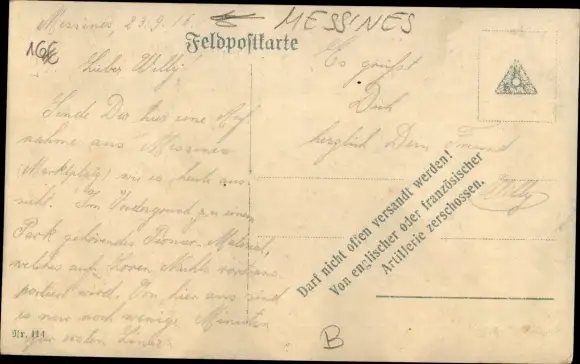 Messines, 23.9.16.
MESSINES
Feldpostkarte
Lieber Willy!
Sende Dir hier eine Auf-
nahme aus Messines
(Marktplatz) wie es heute aus-
sieht. Im Vordergrund zu einem
Park gehörendes Pionier-Material,
welches auf Loren Nachts
wird. Von hier aus sind
es nur noch wenige Minuten
zur ersten Linie.
Es grüsst
Dich
herzlich Dein Freund
Willy
Darf nicht offen versandt werden!
Von englischer oder französischer
Artillerie zerschossen.
Nr. 114
B